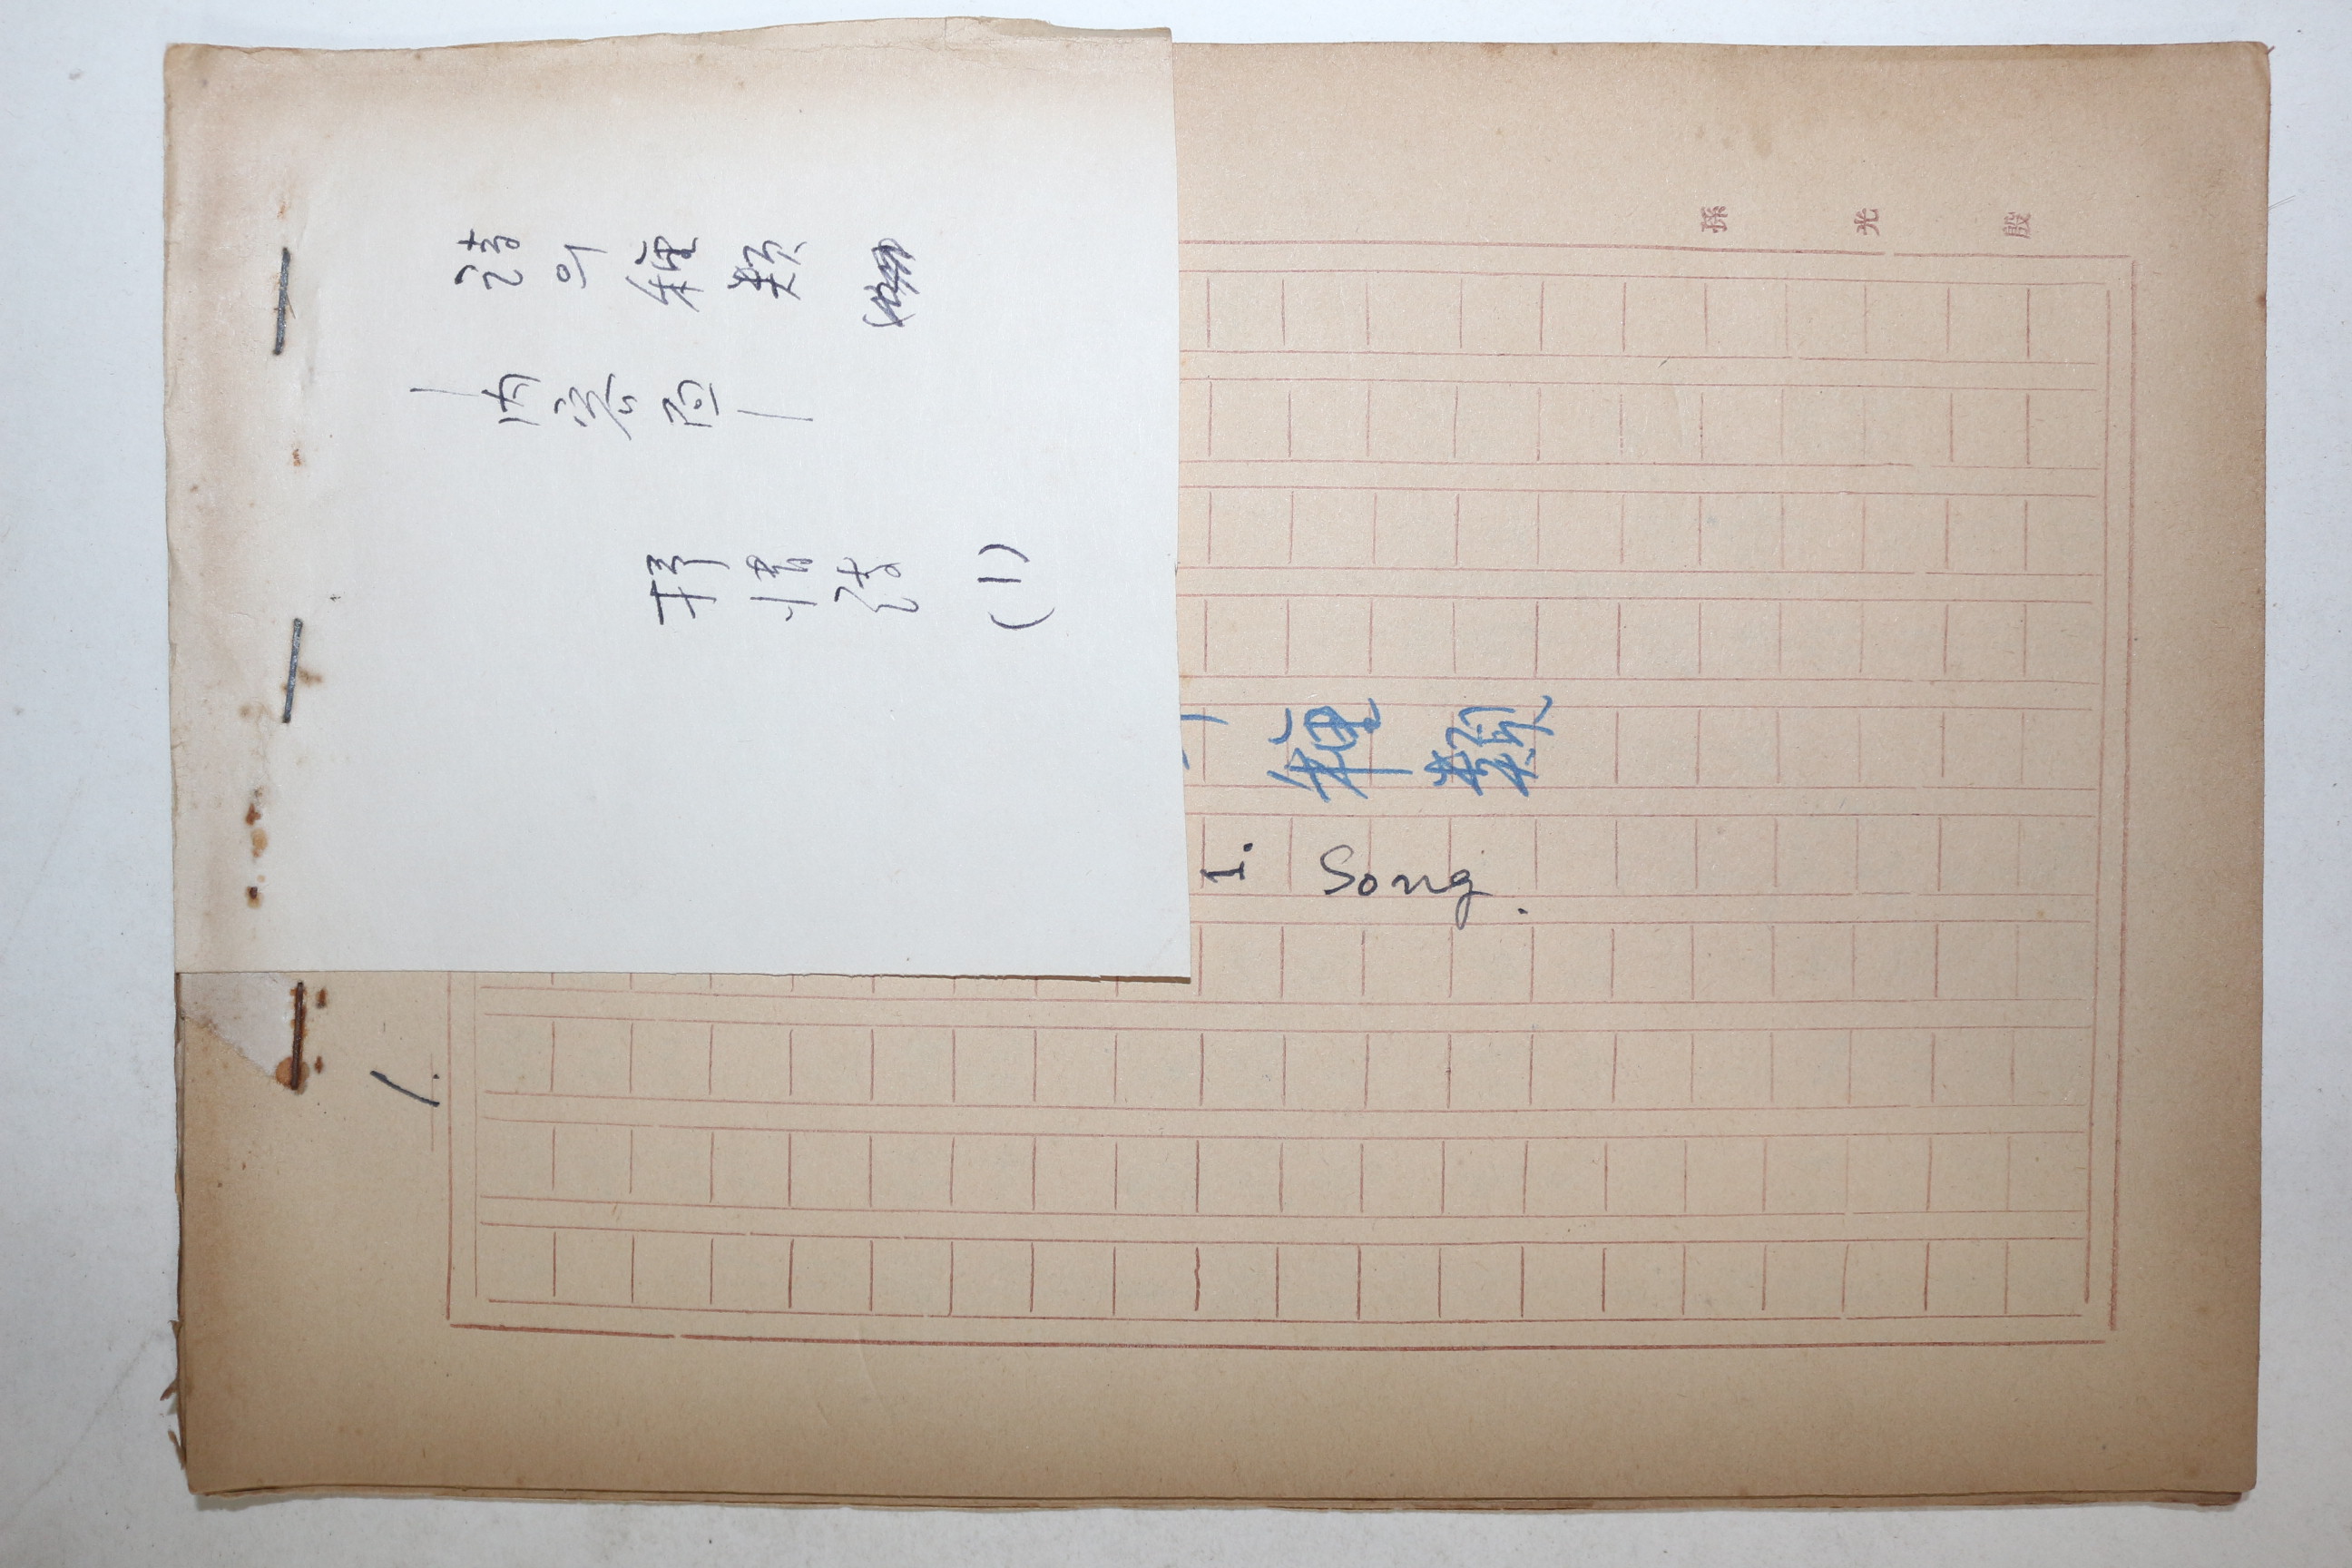 詩의 種類
—内容面—
抒情詩 (1)
孫光殷
種類
1. Song.
1.